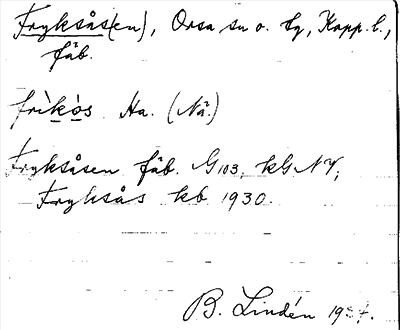 Fryksås(en), Orsa sn o. tg, Kopp. l.,
fäb.
frìkòs Ha. (Nå.)
Fryksåsen fäb. G103, kG NV;
Fryksås kb 1930.
B. Lindén 19